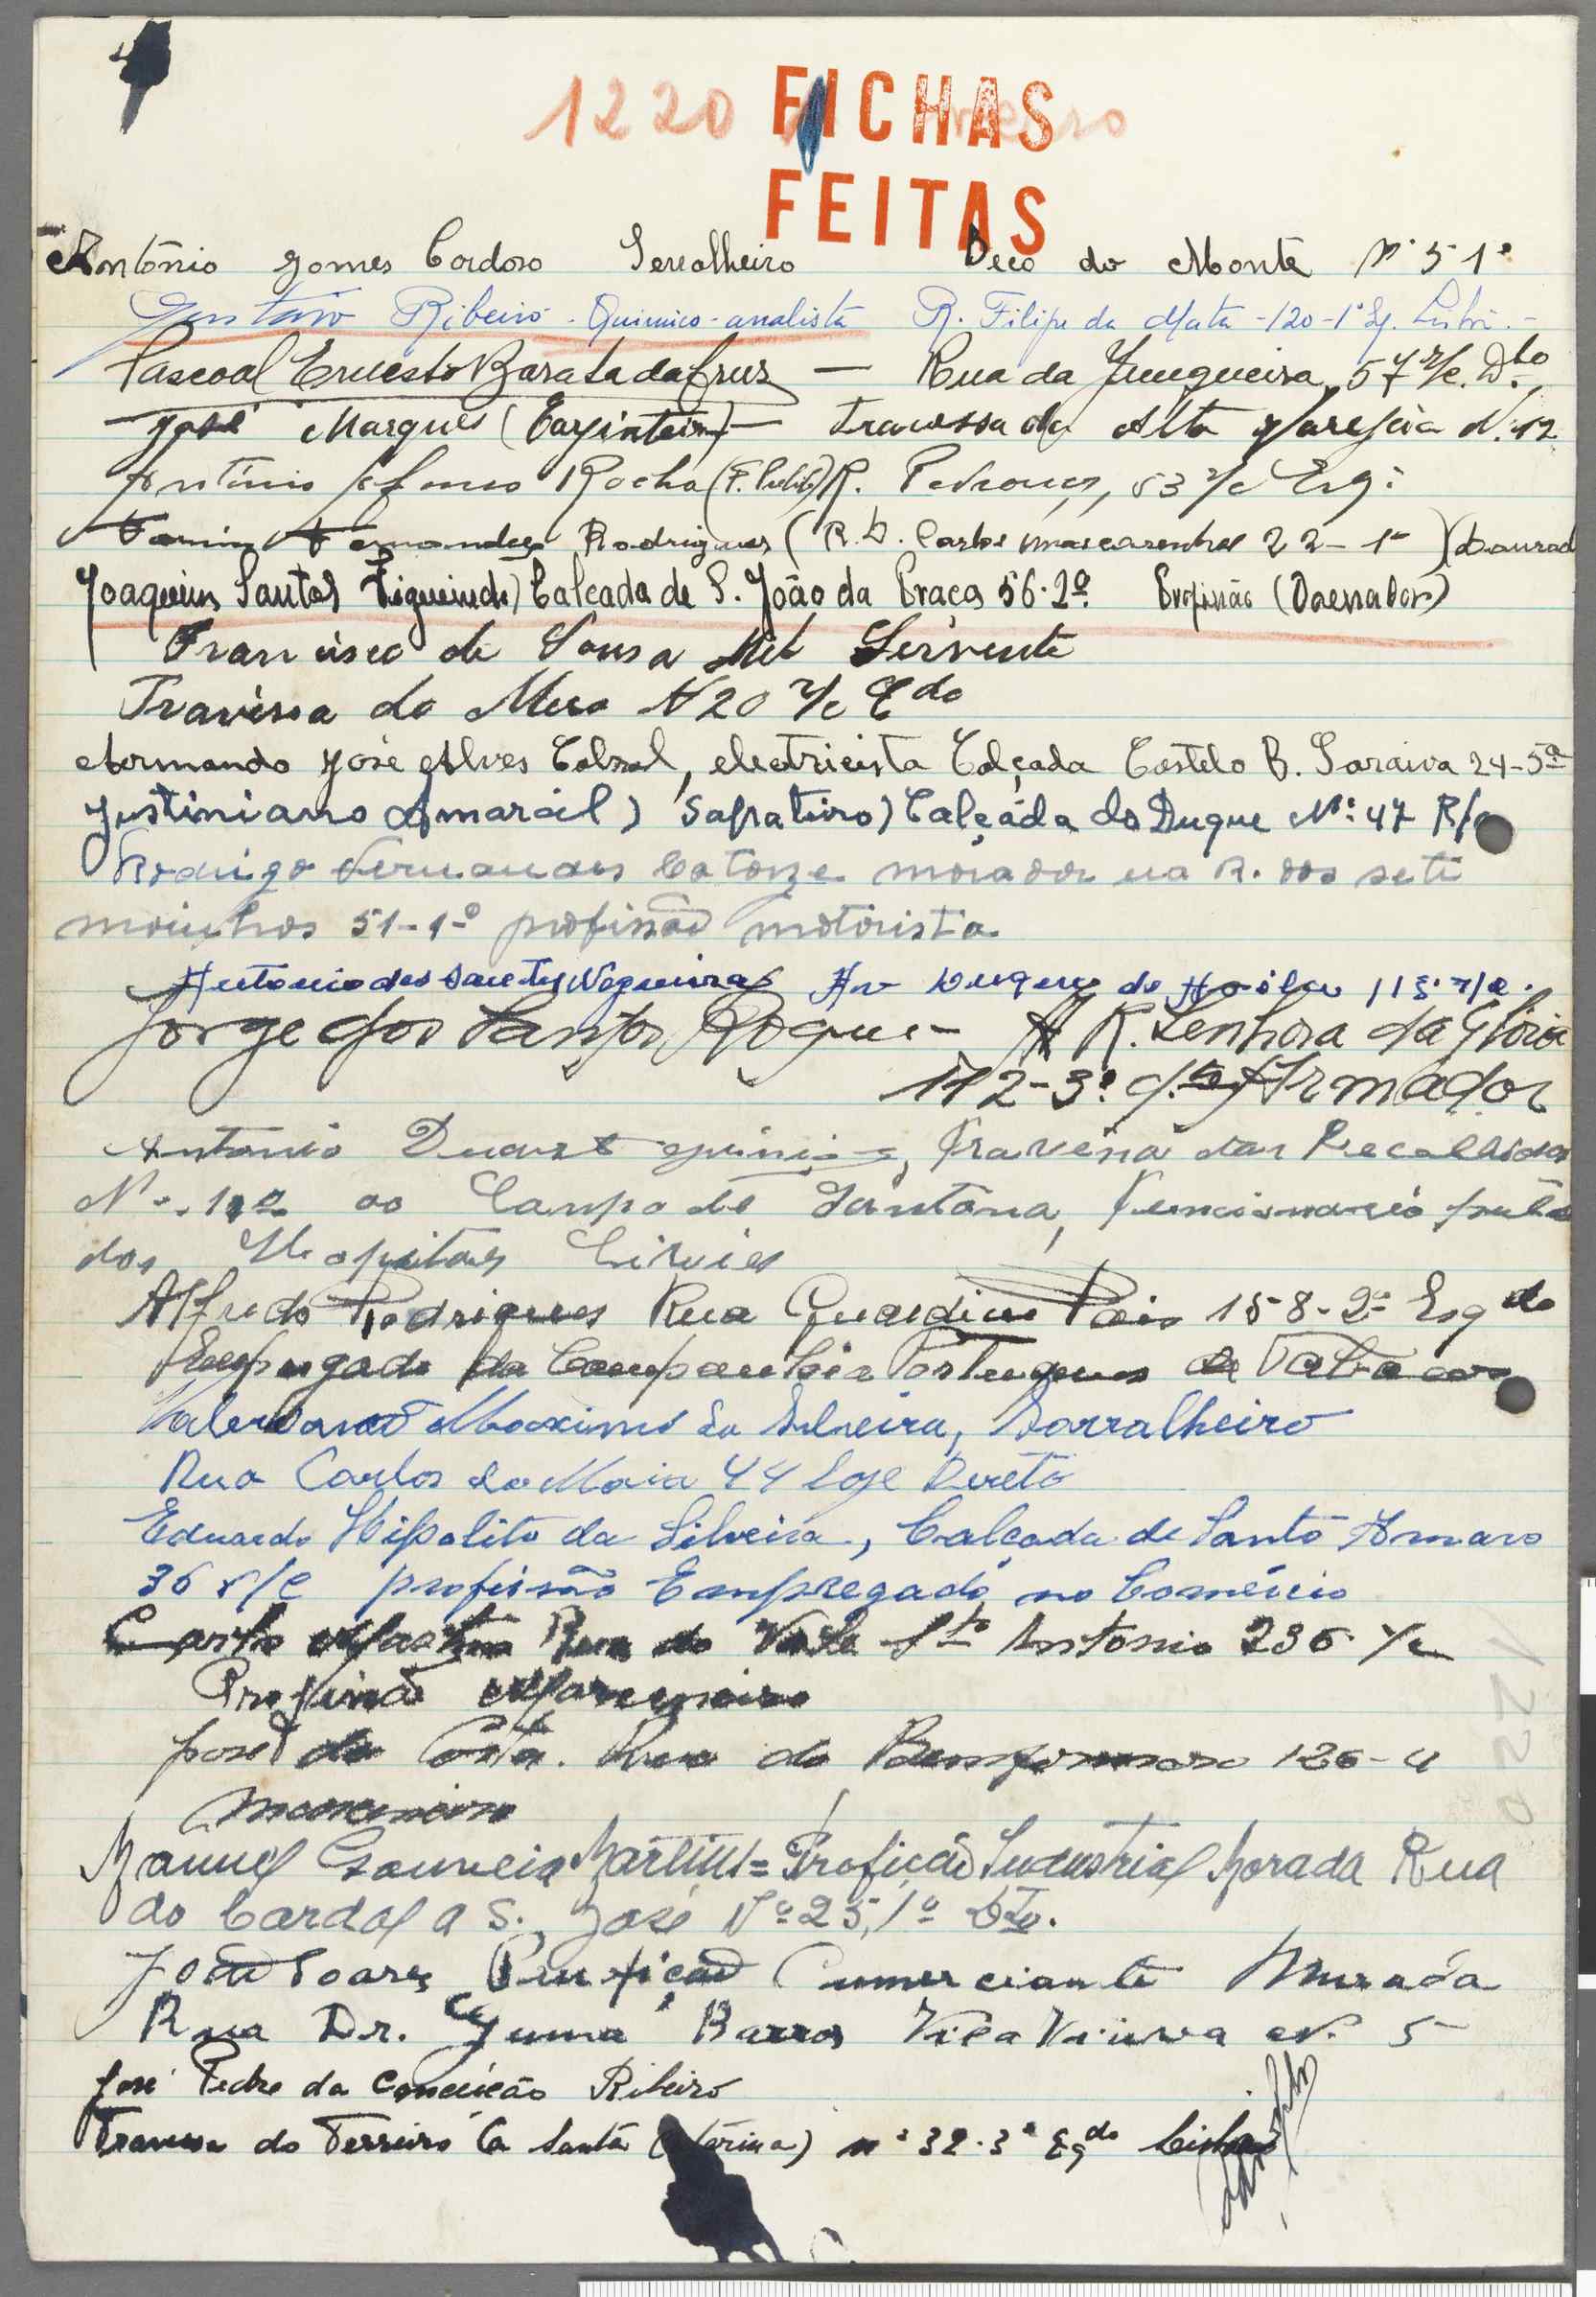 1220
FICHAS
FEITAS
António Gomes Cardoso Serralheiro Beco do Monte Nº 5 1º
Gustavo Ribeiro - Químico-analista R. Filipe da Mata - 120 - 1º
Pascoal Ernesto Barata da Cruz — Rua da Junqueira, 57 r/c. Dto
José Marques (Carpinteiro) — Travessa da Alta N. 12
António Rocha R. Pedrouços, 53 r/c Esq.
Fernandes Rodrigues (R. D. Carlos Mascarenhas 22 - 1º)
Joaquim Santos Figueiredo) Calçada de S. João da Praça 56 - 2º. Profissão
Francisco de Sousa Servente
Travessa do N 20 r/c
Armando José Alves Cabral, electricista Calçada Castelo B. Saraiva 24-5º
Justiniano Amarál) Sapateiro) Calçáda do Duque Nº: 47 R/c
Rodrigo Fernandes Catorze morador na R. dos seti
moinhos 51-1-º profissão motorista
Antonio dos Santos Nogueira Av Duque de r/c.
Jorge dos Santos Roque - R. Senhora da Glória
112-3º. Armador
António Duarte Travessa das Recolhidas
Nº. ao Campo de Santana, Funcionario
dos Hospitais Civies
Alfredo Rodrigues Rua Gualdim Pais 158-2º Esqdo
Empregado da Companhia Portuguesa de Tabacos
Maximo da Silveira, Sarralheiro
Rua Carlos da Maia 44 loje Direto
Eduardo Hipolito da Silveira, Calçada de Santo Amaro
36 r/c profissão Empregado no Comércio
Carlos Martins Rua do Vale Sto Antonio 236 r/c
Profissão Marceneiro
José da Costa. Rua do Benformoso 126-4
Marceneiro
Manuel Gouveia Martins = Profição Industrial Morada Rua
do Cardal a S. José Nº 25, 1º Dto.
João Soares Purificação Cumerciante Murada
Rua Dr. Barros Vila Viuva Nº 5
José Pedro da Conceição Ribeiro
Travessa do Terreiro (a Santa Catarina) nº 32-3º Egdo Lisboa
1220